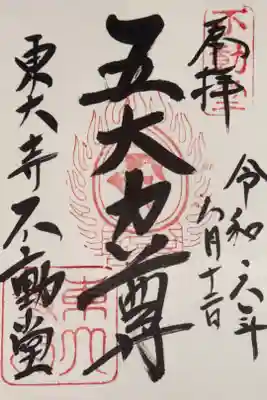 奉拝
令和六年
八月十二日
五大力尊
東大寺不動堂